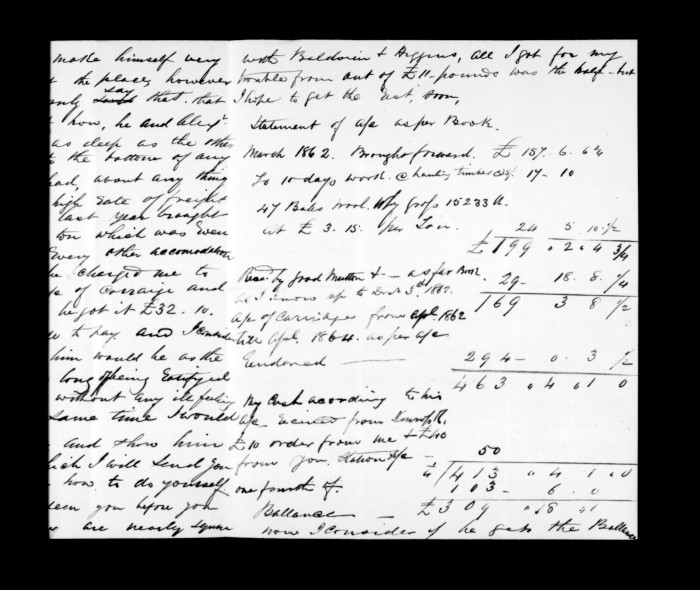 make himself very
the place, however
only say that. that
how, he and Alexr
as deep as the other
to the bottom of any
had, about any thing
high rate of freight
last year brought
ton which was Even
Every other accomodation
he charged me to
of Carraige and
he got it £32. 10.
to pay. and I consider
him would be as the
long of being
without any ill feeling
same time I would
and show him
which I will send you
how to do yourself
seen you before you
are nearly square
with Baldwin & Higgins, all I got for my
trouble from out of £11 pounds was the half - but
I hope to get the rest, soon,
Statement of a/c as per Book.
March 1862. Brought forward. £ 157. 6. 6
To 10 days work @ hauling timber 35/- 17 - 10
47 Bales Wool. Wg gross 15233 lb.
at £ 3. 15. per Ton. 24 5. 10 1/2
£199 " 2 " 4 3/4
Recd by Goods Mutton & - as per Book
as I know up to Decr 3rd 1862. 29 - 18. 8. 1/4
169 3 8 1/2
a/c of Carridge from Apl. 1862
till Apl. 1864. as per a/c
Rendered 294 - 0. 3 1/2
463 " 4 " 0
My Cash according to his
a/c
£10 order from me & £40
from you. Station a/c - 50
413 " 4 " 0
one fourth of. 103 - 6. 0
Ballance - £309 " 18 "
now I consider if he gets the Ballance